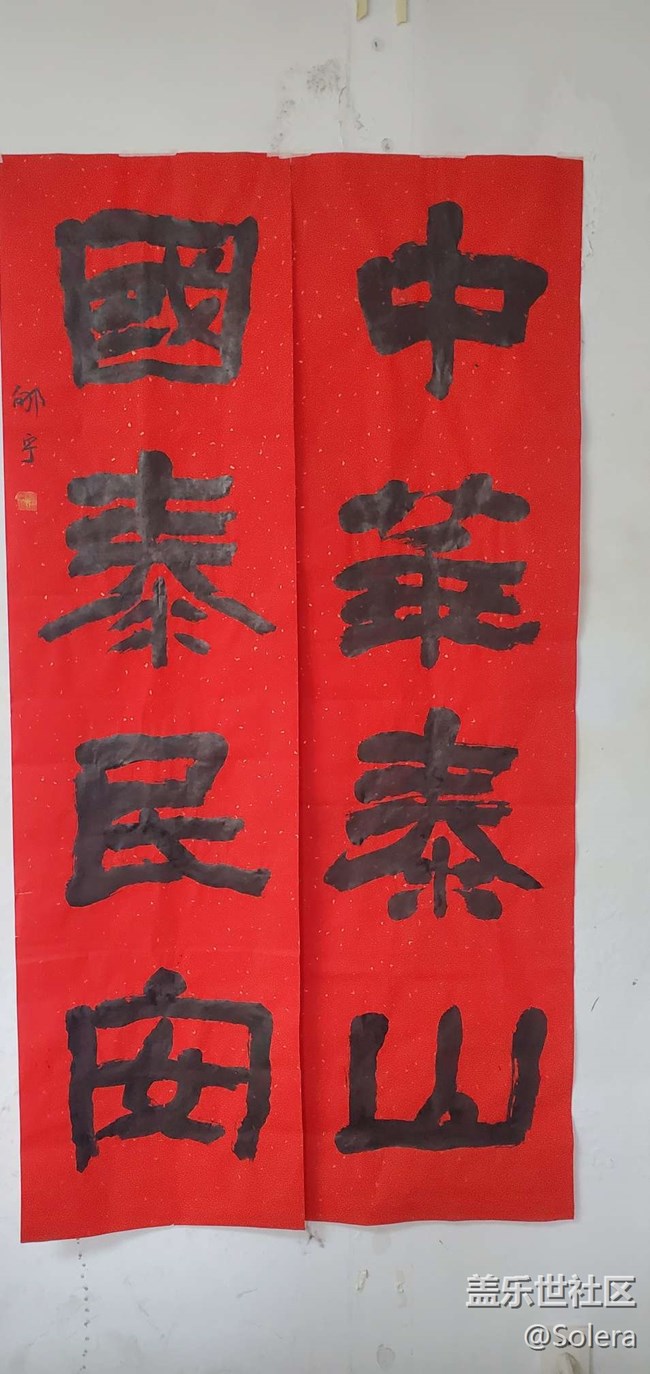 中華泰山
國泰民安
盖乐世社区
@Solera